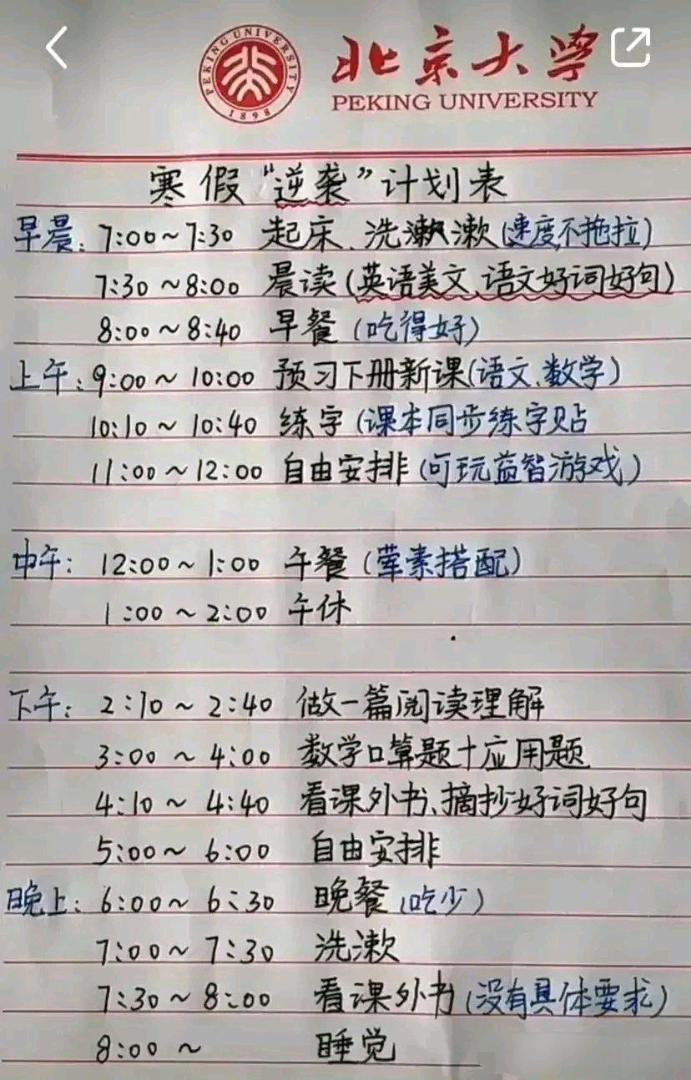 北京大学
PEKING UNIVERSITY
PEKING UNIVERSITY
1898
寒假“逆袭”计划表
早晨: 7:00~7:30 起床、洗漱漱(速度不拖拉)
7:30~8:00 晨读(英语美文、语文好词好句)
8:00~8:40 早餐(吃得好)
上午: 9:00~10:00 预习下册新课(语文、数学)
10:10~10:40 练字(课本同步练字贴
11:00~12:00 自由安排(可玩益智游戏)
中午: 12:00~1:00 午餐(荤素搭配)
1:00~2:00 午休
下午: 2:10~2:40 做一篇阅读理解
3:00~4:00 数学口算题+应用题
4:10~4:40 看课外书、摘抄好词好句
5:00~6:00 自由安排
晚上: 6:00~6:30 晚餐(吃少)
7:00~7:30 洗漱
7:30~8:00 看课外书(没有具体要求)
8:00~ 睡觉